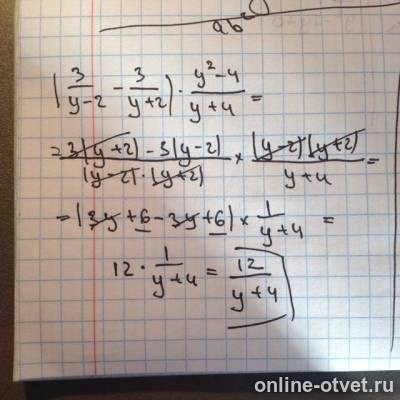 ab
(3/(y-2) - 3/(y+2)) · (y²-4)/(y+4) =
= (3(y+2) - 3(y-2))/((y-2)·(y+2)) × ((y-2)(y+2))/(y+4) =
= (3y+6-3y+6) × 1/(y+4) =
12 · 1/(y+4) = 12/(y+4)
online-otvet.ru